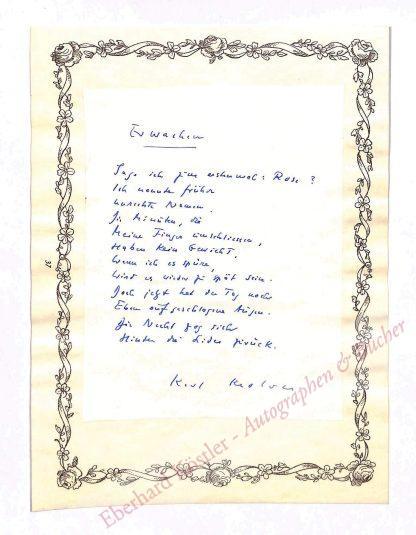 Erwachen
Sage ich zum erstenmal: Rose?
Ich nannte früher
Namen.
Die Minuten, die
Meine Finger umschliessen,
Haben kein Gewicht.
Wenn ich es spüre,
Wird es wieder zu spät sein.
Doch jetzt hat der Tag noch
Eben aufgeschlagene Augen.
Die Nacht zog sich
Hinter die Lider zurück.
Karl Krolow
37
Eberhard Köstler - Autographen & Bücher